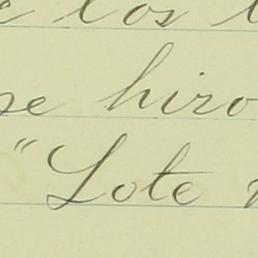 e los
se hizo
"Lote